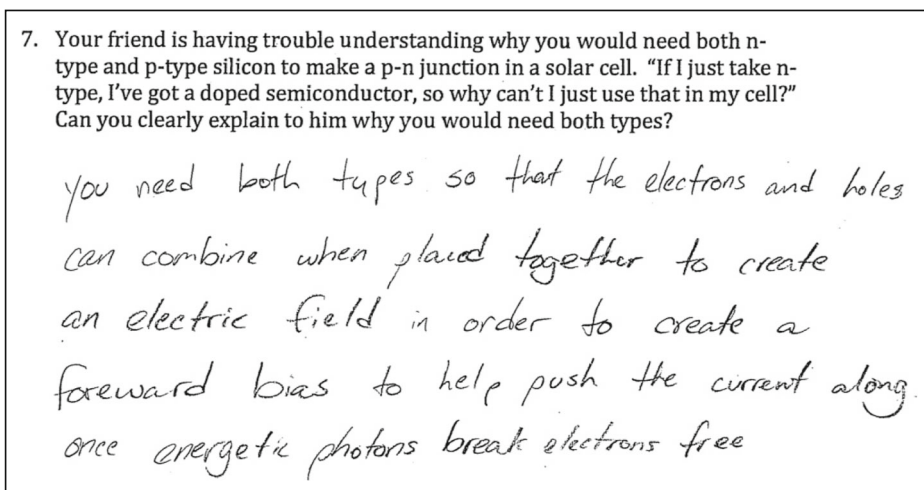 7. Your friend is having trouble understanding why you would need both n-
type and p-type silicon to make a p-n junction in a solar cell. “If I just take n-
type, I’ve got a doped semiconductor, so why can’t I just use that in my cell?”
Can you clearly explain to him why you would need both types?
you need both types so that the electrons and holes
can combine when placed together to create
an electric field in order to create a
foreward bias to help push the current along.
once energetic photons break electrons free